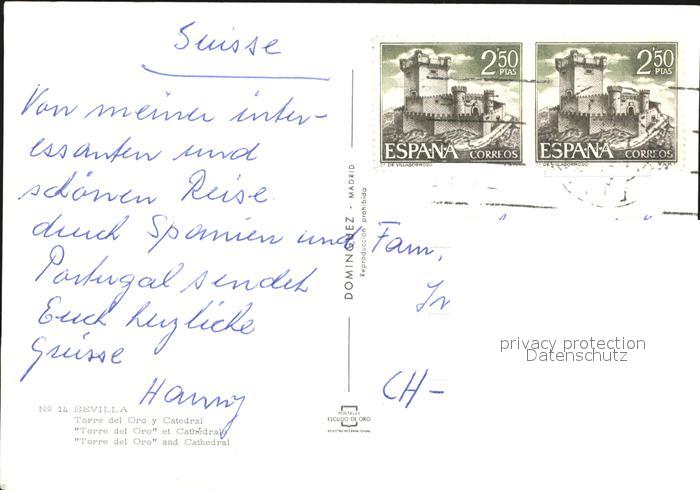 Suisse
Von meiner inter-
essanten und
schönen Reise
durch Spanien und
Portugal sendet
Euch herzliche
Grüsse
Hanny
Nº 14 SEVILLA
Torre del Oro y Catedral
"Torre del Oro" et Cathédral
"Torre del Oro" and Cathedral
DOMINGUEZ - MADRID
Reproducción prohibida
POSTALES
ESCUDO DE ORO
2'50
PTAS
ESPAÑA
CORREOS
Cº DE VILLASOBROSO
2'50
PTAS
ESPAÑA
CORREOS
DE VILLASOBROSO
Fam,
CH-
privacy protection
Datenschutz